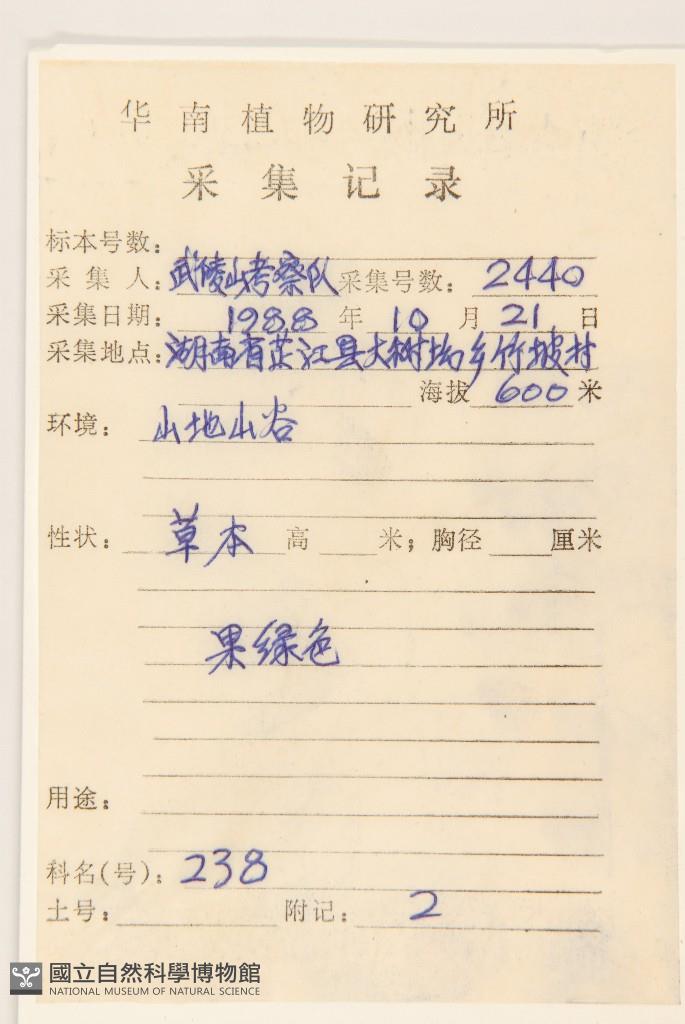 华南植物研究所
采集记录
标本号数：
采集人：武陵山考察队 采集号数：2440
采集日期：1988年10月21日
采集地点：湖南省芷江县大树坳乡竹坡村
海拔600米
环境：山地山谷
性状：草本 高 米；胸径 厘米
果绿色
用途：
科名(号)：238
土号： 附记：2
國立自然科學博物館
NATIONAL MUSEUM OF NATURAL SCIENCE